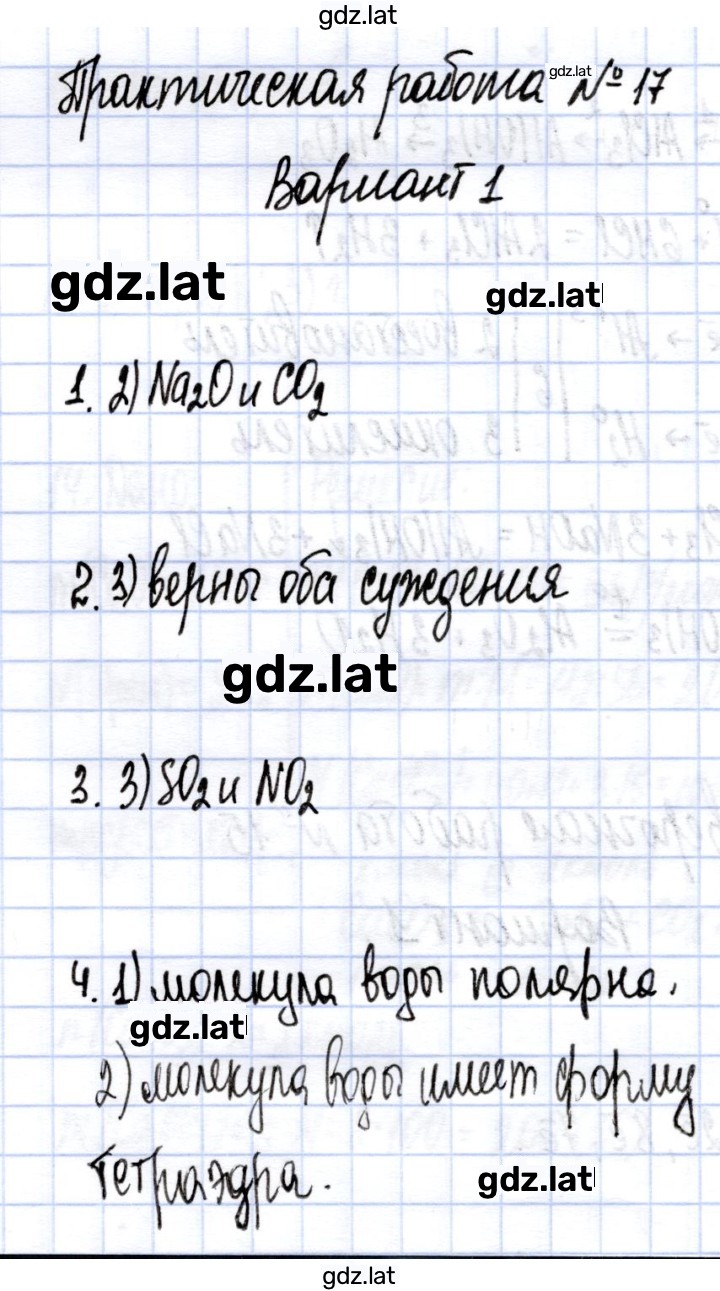 gdz.lat
Практическая работа № 17
gdz.lat
Вариант 1
gdz.lat
gdz.lat
1. 2) Na2O и CO2
2. 3) верны оба суждения
gdz.lat
3. 3) SO2 и NO2
4. 1) молекула воды полярна.
gdz.lat
2) молекула воды имеет форму
тетраэдра.
gdz.lat
gdz.lat